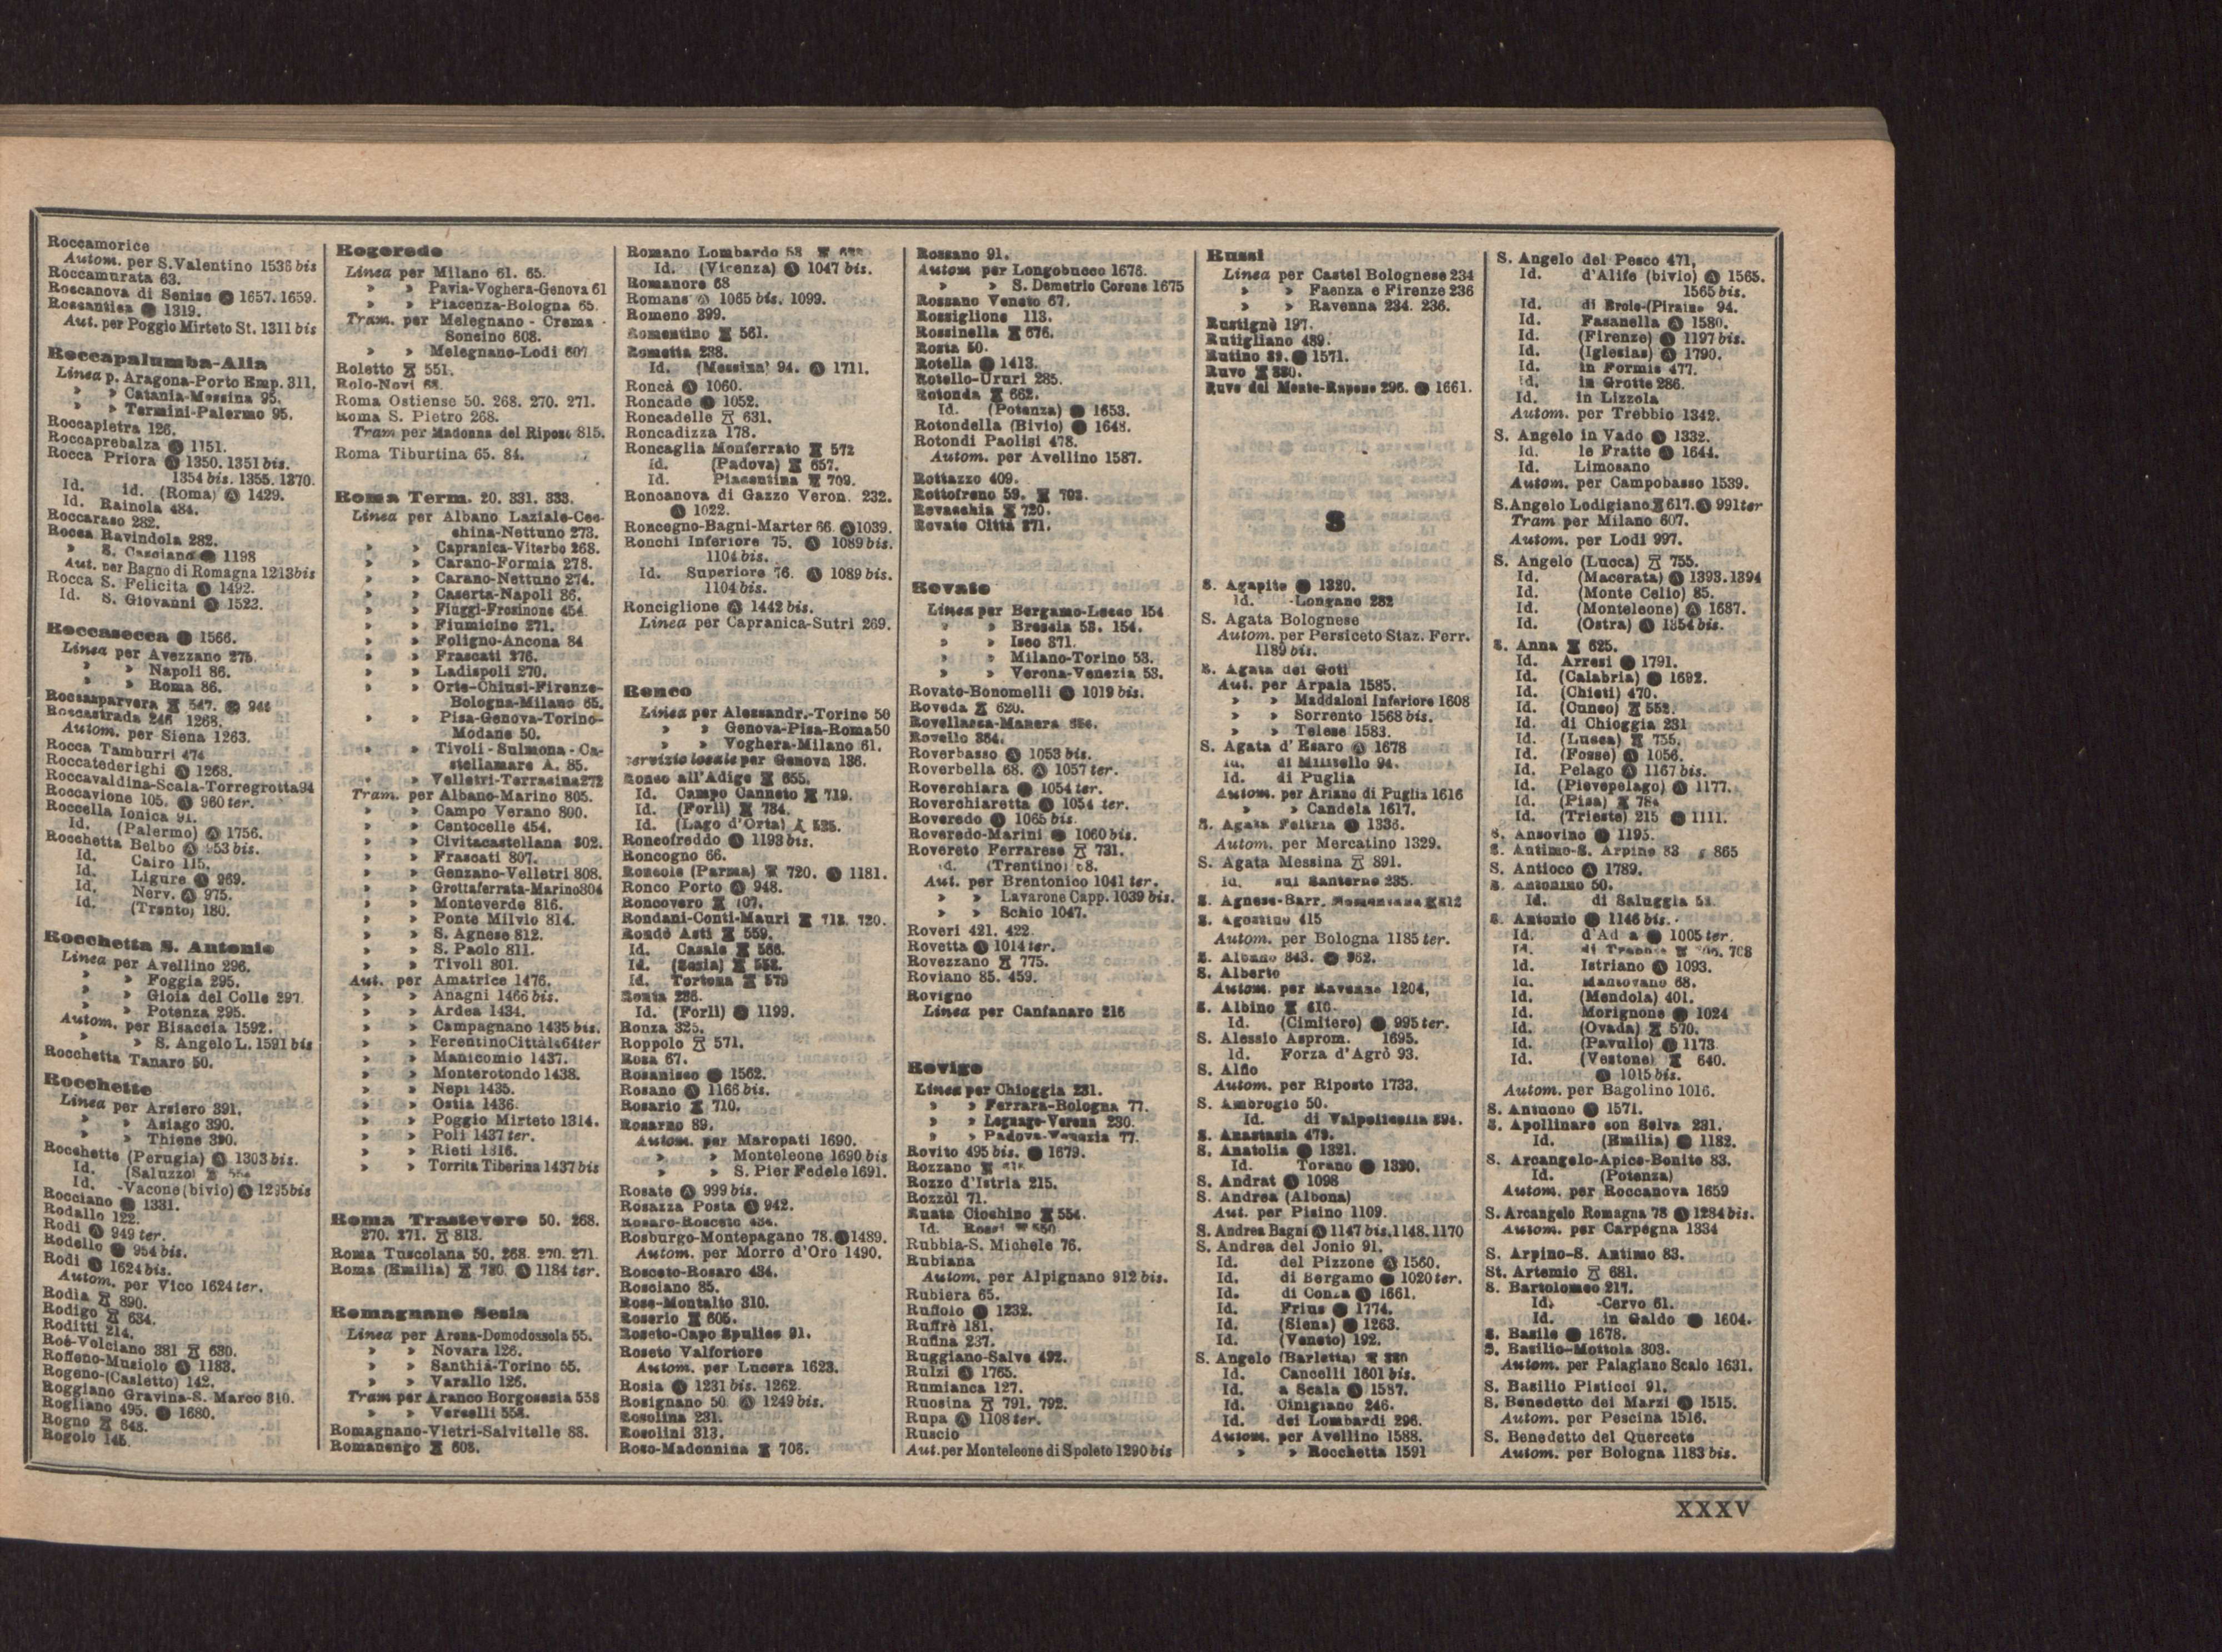 Roccamorice
Autom. per S.Valentino 1536 bis
Roccamurata 63.
Roccanova di Senise Ⓐ 1657. 1659.
Roccantica Ⓐ 1319.
Aut. per Poggio Mirteto St. 1311 bis
Roccapalumba-Alia
Linea p. Aragona-Porto Emp. 311.
» » Catania-Messina 95.
» » Termini-Palermo 95.
Roccapietra 126.
Roccaprebalza Ⓐ 1151.
Rocca Priora Ⓐ 1350. 1351 bis.
1354 bis. 1355. 1370.
Id. id. (Roma) Ⓐ 1429.
Id. Rainola 484.
Roccaraso 282.
Rocca Ravindola 282.
» S. Casciano Ⓐ 1198
Aut. per Bagno di Romagna 1213 bis
Rocca S. Felicita Ⓐ 1492.
Id. S. Giovanni Ⓐ 1523.
Roccasecca Ⓐ 1566.
Linea per Avezzano 275.
» » Napoli 86.
» » Roma 86.
Roccasparvera 547. Ⓐ 944
Roccastrada 246 1268.
Autom. per Siena 1263.
Rocca Tamburri 474
Roccatederighi Ⓐ 1268.
Roccavaldina-Scala-Torregrotta 94
Roccavione 105. Ⓐ 960 ter.
Roccella Ionica 91.
Id. (Palermo) Ⓐ 1756.
Rocchetta Belbo Ⓐ 953 bis.
Id. Cairo 115.
Id. Ligure Ⓐ 969.
Id. Nerv. Ⓐ 975.
Id. (Trento) 180.
Rocchetta S. Antonio
Linea per Avellino 296.
» » Foggia 295.
» » Gioia del Colle 297.
» » Potenza 295.
Autom. per Bisaccia 1592.
» » S. Angelo L. 1591 bis
Rocchetta Tanaro 50.
Rocchette
Linea per Arsiero 391.
» » Asiago 390.
» » Thiene 390.
Rocchette (Perugia) Ⓐ 1303 bis.
Id. (Saluzzo)
Id. -Vacone (bivio) Ⓐ 1295 bis
Rocciano Ⓐ 1331.
Rodallo 122.
Rodi Ⓐ 949 ter.
Rodello Ⓐ 954 bis.
Rodi Ⓐ 1624 bis.
Autom. per Vico 1624 ter.
Rodia 890.
Rodigo 634.
Roditti 214.
Roè-Volciano 381 630.
Roffeno-Musiolo Ⓐ 1183.
Rogeno-(Casletto) 142.
Roggiano Gravina-S. Marco 310.
Rogliano 495. Ⓐ 1680.
Rogno 648.
Rogolo 145.
Rogoredo
Linea per Milano 61. 65.
» » Pavia-Voghera-Genova 61
» » Piacenza-Bologna 65.
Tram. per Melegnano - Crema -
Soncino 608.
» » Melegnano-Lodi 607
Roletto 551.
Rolo-Novi 68.
Roma Ostiense 50. 268. 270. 271.
Roma S. Pietro 268.
Tram per Madonna del Riposo 815.
Roma Tiburtina 65. 84.
Roma Term. 20. 331. 333.
Linea per Albano Laziale-Cec-
china-Nettuno 273.
» » Capranica-Viterbo 268.
» » Carano-Formia 278.
» » Carano-Nettuno 274.
» » Caserta-Napoli 86.
» » Fiuggi-Frosinone 454
» » Fiumicino 271.
» » Foligno-Ancona 84
» » Frascati 276.
» » Ladispoli 270.
» » Orte-Chiusi-Firenze-
Bologna-Milano 65.
» » Pisa-Genova-Torino-
Modane 50.
» » Tivoli - Sulmona - Ca-
stellamare A. 85.
» » Velletri-Terracina 272
Tram. per Albano-Marino 805.
» » Campo Verano 800.
» » Centocelle 454.
» » Civitacastellana 802.
» » Frascati 807.
» » Genzano-Velletri 808.
» » Grottaferrata-Marino 804
» » Monteverde 816.
» » Ponte Milvio 814.
» » S. Agnese 812.
» » S. Paolo 811.
» » Tivoli 801.
Aut. per Amatrice 1476.
» » Anagni 1466 bis.
» » Ardea 1434.
» » Campagnano 1435 bis.
» » Ferentino Città 1464 ter
» » Manicomio 1437.
» » Monterotondo 1438.
» » Nepi 1435.
» » Ostia 1436.
» » Poggio Mirteto 1314.
» » Poli 1437 ter.
» » Rieti 1316.
» » Torrita Tiberina 1437 bis
Roma Trastevere 50. 268.
270. 271. 813.
Roma Tuscolana 50. 268. 270. 271.
Roma (Emilia) 780. Ⓐ 1184 ter.
Romagnano Sesia
Linea per Arona-Domodossola 55.
» » Novara 126.
» » Santhià-Torino 55.
» » Varallo 126.
Tram per Aranco Borgosesia 558
» » Vercelli 558.
Romagnano-Vietri-Salvitelle 88.
Romanengo 608.
Romano Lombardo 53
Id. (Vicenza) Ⓐ 1047 bis.
Romanore 68
Romans Ⓐ 1065 bis. 1099.
Romeno 399.
Romentino 561.
Rometta 238.
Id. (Messina) 94. Ⓐ 1711.
Roncà Ⓐ 1060.
Roncade Ⓐ 1052.
Roncadelle 631.
Roncadizza 178.
Roncaglia Monferrato 572
Id. (Padova) 657.
Id. Piacentina 709.
Roncanova di Gazzo Veron. 232.
Ⓐ 1022.
Roncegno-Bagni-Marter 66. Ⓐ 1039.
Ronchi Inferiore 75. Ⓐ 1089 bis.
1104 bis.
Id. Superiore 76. Ⓐ 1089 bis.
1104 bis.
Ronciglione Ⓐ 1442 bis.
Linea per Capranica-Sutri 269.
Ronco
Linea per Alessandr.-Torino 50
» » Genova-Pisa-Roma 50
» » Voghera-Milano 61.
Servizio locale per Genova 136.
Ronco all'Adige 655.
Id. Campo Canneto 719.
Id. (Forlì) 784.
Id. (Lago d'Orta) 535.
Roncofreddo Ⓐ 1193 bis.
Roncogno 66.
Roncole (Parma) 720. Ⓐ 1181.
Ronco Porto Ⓐ 948.
Roncovero 707.
Rondani-Conti-Mauri 718. 720.
Rondò Asti 559.
Id. Casale 566.
Id. (Sesia) 558.
Id. Tortona 579
Ronta 236.
Id. (Forlì) Ⓐ 1199.
Ronza 325.
Roppolo 571.
Rosa 67.
Rosanisco Ⓐ 1562.
Rosano Ⓐ 1166 bis.
Rosario 710.
Rosarno 89.
Autom. per Maropati 1690.
» » Monteleone 1690 bis
» » S. Pier Fedele 1691.
Rosate Ⓐ 999 bis.
Rosazza Posta Ⓐ 942.
Rosaro-Rosceto 484.
Rosburgo-Montepagano 78. Ⓐ 1489.
Autom. per Morro d'Oro 1490.
Rosceto-Rosaro 484.
Rosciano 85.
Rose-Montalto 310.
Roserio 605.
Roseto-Capo Spulico 91.
Roseto Valfortore
Autom. per Lucera 1623.
Rosia Ⓐ 1231 bis. 1262.
Rosignano 50. Ⓐ 1249 bis.
Rosolina 231.
Rosolini 313.
Roso-Madonnina 706.
Rossano 91.
Autom per Longobucco 1676.
» » S. Demetrio Corone 1675
Rossano Veneto 67.
Rossiglione 113.
Rossinella 676.
Rosta 50.
Rotella Ⓐ 1413.
Rotello-Ururi 285.
Rotonda 662.
Id. (Potenza) Ⓐ 1653.
Rotondella (Bivio) Ⓐ 1648.
Rotondi Paolisi 478.
Autom. per Avellino 1587.
Rottazzo 409.
Rottofreno 59. 703.
Rovacchia 720.
Rovate Città 271.
Rovato
Linea per Bergamo-Lecco 154
» » Brescia 53. 154.
» » Iseo 371.
» » Milano-Torino 53.
» » Verona-Venezia 53.
Rovato-Bonomelli Ⓐ 1019 bis.
Roveda 620.
Rovellasca-Manera 354.
Rovello 364.
Roverbasso Ⓐ 1053 bis.
Roverbella 68. Ⓐ 1057 ter.
Roverchiara Ⓐ 1054 ter.
Roverchiaretta Ⓐ 1054 ter.
Roveredo Ⓐ 1065 bis.
Roveredo-Marini Ⓐ 1060 bis.
Rovereto Ferrarese 731.
Id. (Trentino) 68.
Aut. per Brentonico 1041 ter.
» » Lavarone Capp. 1039 bis.
» » Schio 1047.
Roveri 421. 422.
Rovetta Ⓐ 1014 ter.
Rovezzano 775.
Roviano 85. 459.
Rovigno
Linea per Canfanaro 216
Rovigo
Linea per Chioggia 231.
» » Ferrara-Bologna 77.
» » Legnago-Verona 230.
» » Padova-Venezia 77.
Rovito 495 bis. Ⓐ 1679.
Rozzano
Rozzo d'Istria 215.
Rozzòl 71.
Ruata Ciochino 554.
Id. Rossi 550
Rubbia-S. Michele 76.
Rubiana
Autom. per Alpignano 912 bis.
Rubiera 65.
Ruffolo Ⓐ 1232.
Ruffrè 181.
Rufina 237.
Ruggiano-Salve 492.
Rulzi Ⓐ 1765.
Rumianca 127.
Ruosina 791. 792.
Rupa Ⓐ 1108 ter.
Ruscio
Aut. per Monteleone di Spoleto 1290 bis
Russi
Linea per Castel Bolognese 234
» » Faenza e Firenze 236
» » Ravenna 234. 236.
Rustignè 197.
Rutigliano 489.
Rutino 89. Ⓐ 1571.
Ruvo 880.
Ruvo del Monte-Rapone 296. Ⓐ 1661.
S
S. Agapito Ⓐ 1320.
Id. -Longano 282
S. Agata Bolognese
Autom. per Persiceto Staz. Ferr.
1189 bis.
S. Agata dei Goti
Aut. per Arpaia 1585.
» » Maddaloni Inferiore 1608
» » Sorrento 1568 bis.
» » Telese 1583.
S. Agata d'Esaro Ⓐ 1678
Id. di Militello 94.
Id. di Puglia
Autom. per Ariano di Puglia 1616
» » Candela 1617.
S. Agata Feltria Ⓐ 1336.
Autom. per Mercatino 1329.
S. Agata Messina 891.
Id. sul Santerno 235.
S. Agnese-Barr. Nomentana 812
S. Agostino 415
Autom. per Bologna 1185 ter.
S. Albano 343. Ⓐ 962.
S. Alberto
Autom. per Ravenna 1204.
S. Albino 610.
Id. (Cimitero) Ⓐ 995 ter.
S. Alessio Asprom. 1695.
Id. Forza d'Agrò 93.
S. Alfio
Autom. per Riposto 1733.
S. Ambrogio 50.
Id. di Valpolicella 394.
S. Anastasia 479.
S. Anatolia Ⓐ 1321.
Id. Torano Ⓐ 1320.
S. Andrat Ⓐ 1098
S. Andrea (Albona)
Aut. per Pisino 1109.
S. Andrea Bagni Ⓐ 1147 bis. 1148. 1170
S. Andrea del Jonio 91.
Id. del Pizzone Ⓐ 1560.
Id. di Bergamo Ⓐ 1020 ter.
Id. di Conza Ⓐ 1661.
Id. Frius Ⓐ 1774.
Id. (Siena) Ⓐ 1263.
Id. (Veneto) 192.
S. Angelo (Barletta) 880
Id. Cancelli 1601 bis.
Id. a Scala Ⓐ 1587.
Id. Cinigiano 246.
Id. dei Lombardi 296.
Autom. per Avellino 1588.
» » Rocchetta 1591
S. Angelo del Pesco 471.
Id. d'Alife (bivio) Ⓐ 1565.
1565 bis.
Id. di Brolo-(Piraino 94.
Id. Fasanella Ⓐ 1580.
Id. (Firenze) Ⓐ 1197 bis.
Id. (Iglesias) Ⓐ 1790.
Id. in Formis 477.
Id. in Grotte 286.
Id. in Lizzola
Autom. per Trebbio 1342.
S. Angelo in Vado Ⓐ 1332.
Id. le Fratte Ⓐ 1644.
Id. Limosano
Autom. per Campobasso 1539.
S. Angelo Lodigiano 617. Ⓐ 991 ter
Tram per Milano 607.
Autom. per Lodi 997.
S. Angelo (Lucca) 755.
Id. (Macerata) Ⓐ 1393. 1394
Id. (Monte Celio) 85.
Id. (Monteleone) Ⓐ 1687.
Id. (Ostra) Ⓐ 1354 bis.
S. Anna 625.
Id. Arresi Ⓐ 1791.
Id. (Calabria) Ⓐ 1692.
Id. (Chieti) 470.
Id. (Cuneo) 552.
Id. di Chioggia 231
Id. (Lucca) 755.
Id. (Fosse) Ⓐ 1056.
Id. Pelago Ⓐ 1167 bis.
Id. (Pievepelago) Ⓐ 1177.
Id. (Pisa) 784
Id. (Trieste) 215 Ⓐ 1111.
S. Ansovino Ⓐ 1195.
S. Antimo-S. Arpino 83 865
S. Antioco Ⓐ 1789.
S. Antonino 50.
Id. di Saluggia 53.
S. Antonio Ⓐ 1146 bis.
Id. d'Adda Ⓐ 1005 ter.
Id. di Trebbia 708
Id. Istriano Ⓐ 1093.
Id. Mantovano 68.
Id. (Mendola) 401.
Id. Morignone Ⓐ 1024
Id. (Ovada) 570.
Id. (Pavullo) Ⓐ 1173
Id. (Vestone) 640.
Ⓐ 1015 bis.
Autom. per Bagolino 1016.
S. Antuono Ⓐ 1571.
S. Apollinare con Selva 231.
Id. (Emilia) Ⓐ 1182.
S. Arcangelo-Apice-Bonito 83.
Id. (Potenza)
Autom. per Roccanova 1659
S. Arcangelo Romagna 78 Ⓐ 1284 bis.
Autom. per Carpegna 1334
S. Arpino-S. Antimo 83.
St. Artemio 681.
S. Bartolomeo 217.
Id. -Cervo 61.
Id. in Galdo Ⓐ 1604.
S. Basile Ⓐ 1678.
S. Basilio-Mottola 303.
Autom. per Palagiano Scalo 1631.
S. Basilio Pisticci 91.
S. Benedetto dei Marzi Ⓐ 1515.
Autom. per Pescina 1516.
S. Benedetto del Querceto
Autom. per Bologna 1183 bis.
XXXV